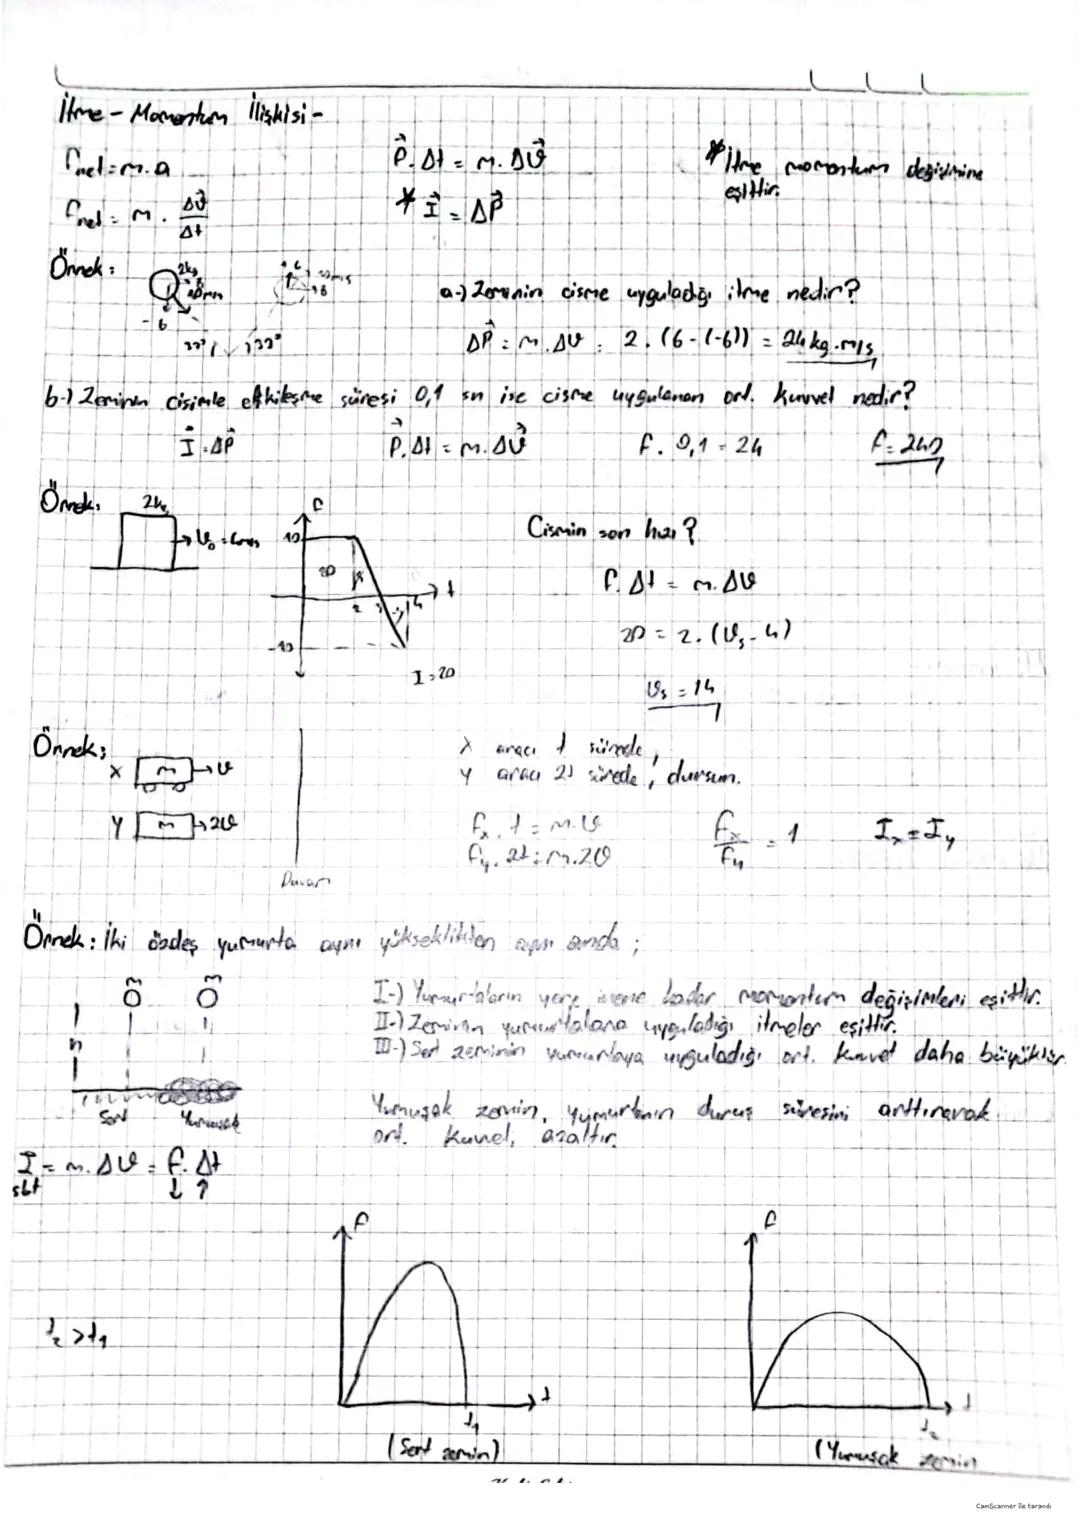 İtme - Momentum İlişkisi -
Fnet = m.a
F⃗.Δt = m.Δϑ⃗
* İtme momentum değişimine
eşittir.
Fnet = m. Δϑ⃗/Δt
* I⃗ = ΔP⃗
Örnek:
2kg
8
6
-6
a-) Zeminin cisme uyguladığı itme nedir?
ΔP⃗ = m.Δϑ = 2.(6-(-6)) = 24 kg.m/s
b-) Zeminin cisimle etkileşme süresi 0,1 sn ise cisme uygulanan ort. kuvvet nedir?
I⃗ = ΔP⃗
F⃗.Δt = m.Δϑ⃗
F. 0,1 = 24
Örnek:
2kg
F
10
20
2
3
4
t
-10
I=20
Cismin son hızı?
F.Δt = m.Δϑ
20 = 2.(ϑs-4)
ϑs = 14
Örnek:
X
m
ϑ
Y
m
2ϑ
Duvar
X aracı t sürede,
Y aracı 2t sürede, dursun.
Fx.t = m.ϑ
Fy.2t = m.2ϑ
Fx/Fy = 1
Ix = Iy
Örnek: İki özdeş yumurta aynı yükseklikten aynı anda;
m
m
h
Sert
Yumuşak
I-) Yumurtaların yere inene kadar momentum değişimleri eşittir.
II-) Zeminin yumurtalara uyguladığı itmeler eşittir.
III-) Sert zeminin yumurtaya uyguladığı ort. kuvvet daha büyüktür.
Yumuşak zemin, yumurtanın duruş süresini arttırarak
ort. kuvvet, azaltır.
I = m.Δϑ = F.Δt
sbt ↓ ↑
t₂ > t₁
F
t
t₁
(Sert zemin)
F
t
t₂
(Yumuşak zemin
CamScanner ile tarandı